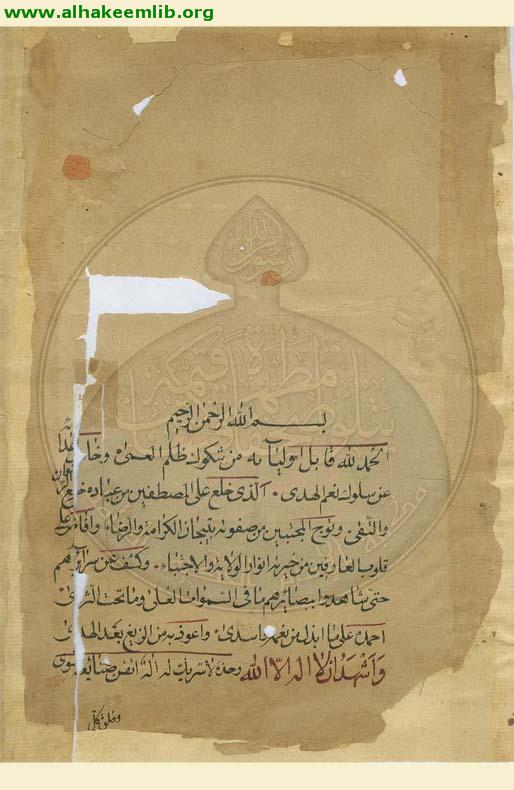 www.alhakeemlib.org
رسول من الله
يتلو صحفا مطهرة فيها كتب قيمة
بسم الله الرحمن الرحيم
الحمد لله قابل اوليآئه من شكوك ظلم العمى وخاذل اعدائه
عن سلوك نعم الهدى الذى خلع على المصطفين من عباده خلع
والتقى وتوج المجتبين من صفوته بتيجان الكرامة والرضاء وافاض على
قلوب العارفين من خيرته انوار الولاية والاجتباء وكشف عن سرائرهم
حتى شاهدوا ببصايرهم ما فى السموات العلى وما تحت الثرى
احمده على ما ابذل من نعمه واسدى واعوذ به من الزيغ بعد الهدى
واشهد ان لا اله الا الله وحده لا شريك له اله اتقن صنايع
وفلق كل